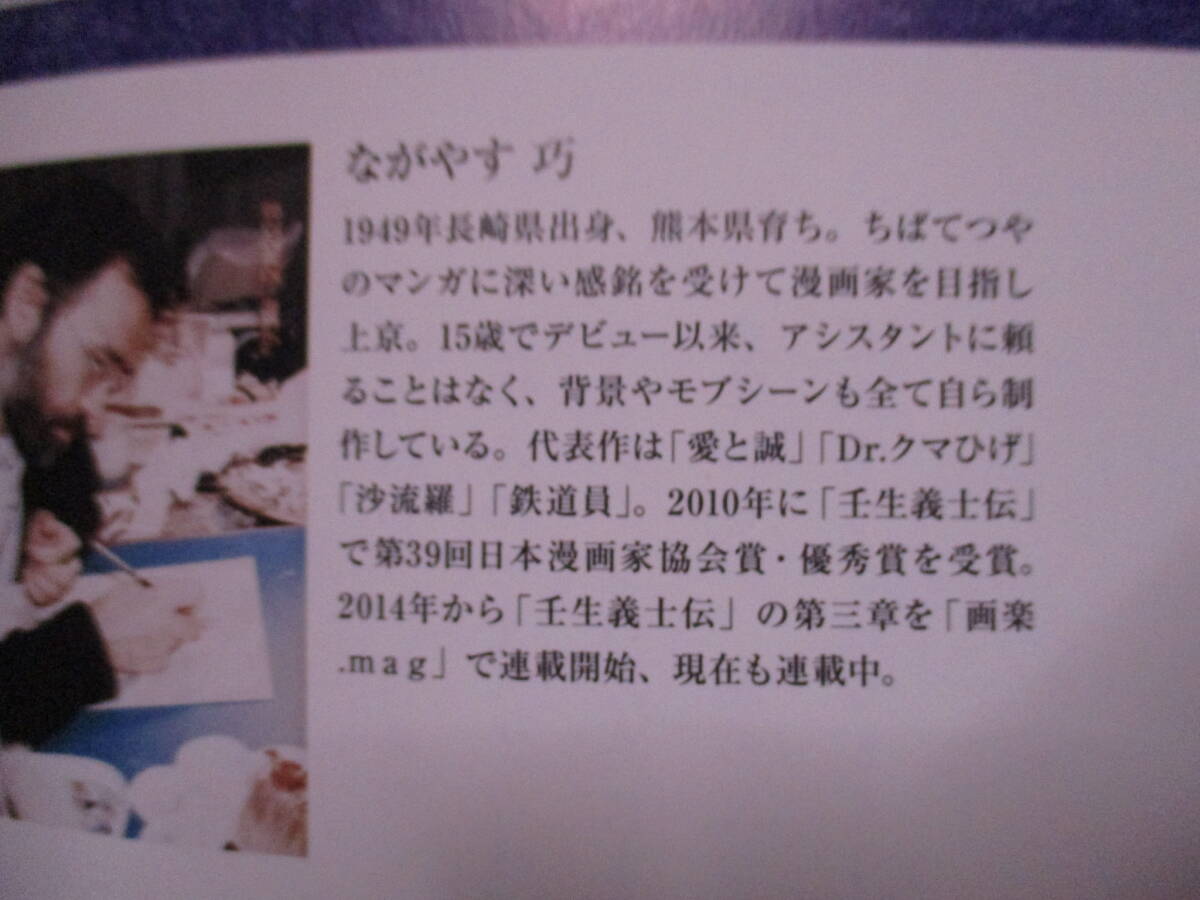 ながやす 巧
1949年長崎県出身、熊本県育ち。ちばてつや
のマンガに深い感銘を受けて漫画家を目指し
上京。15歳でデビュー以来、アシスタントに頼
ることはなく、背景やモブシーンも全て自ら制
作している。代表作は「愛と誠」「Dr.クマひげ」
「沙流羅」「鉄道員」。2010年に「壬生義士伝」
で第39回日本漫画家協会賞・優秀賞を受賞。
2014年から「壬生義士伝」の第三章を「画楽
.mag」で連載開始、現在も連載中。